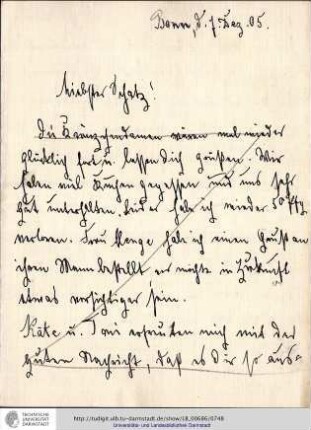 Bonn, d. 7. Dez. 05.
Liebster Schatz!
Die Kränzchendamen wären mal wieder
glücklich fort u. lassen Dich grüßen. Wir
haben viel Kuchen gegessen und uns sehr
gut unterhalten. Leider hab ich wieder 50 Pfg.
verloren. Frau hab ich einen Gruß an
ihren Mann bestellt er möchte in Zukunft
etwas vorsichtiger sein.
Käte u. erfreuten mich mit der
guten Nachricht, daß es Dir so aus-
TECHNISCHE UNIVERSITÄT DARMSTADT
http://tudigit.ulb.tu-darmstadt.de/show/18_00686/0748
Universitäts- und Landesbibliothek Darmstadt